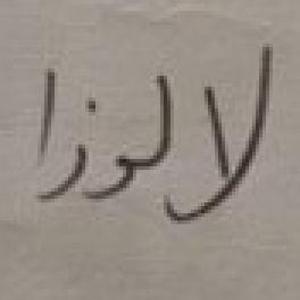 لالوزا